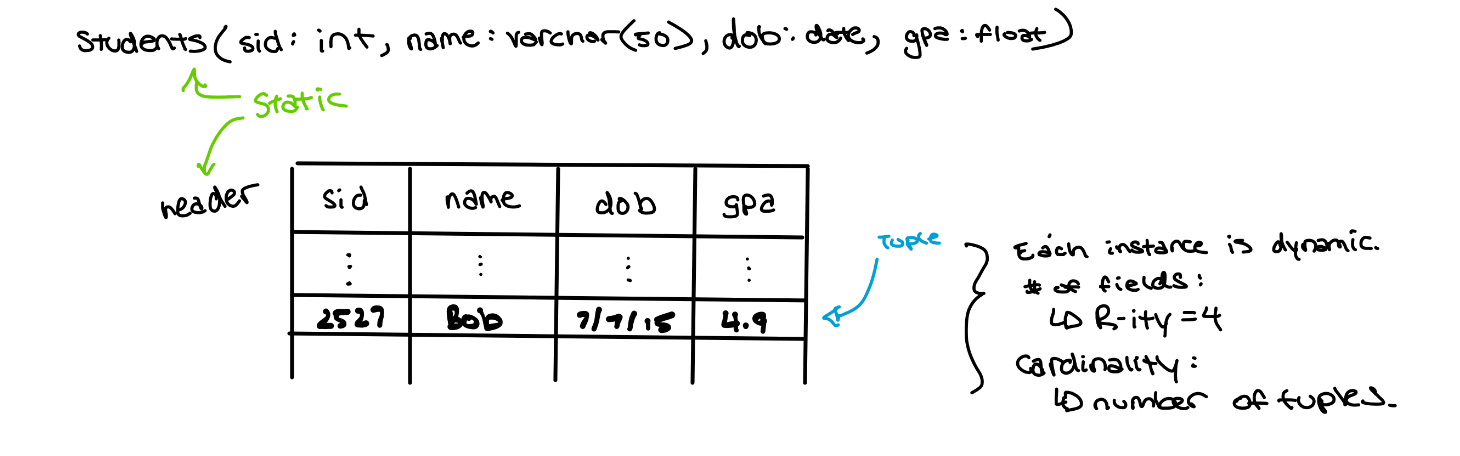 Students( sid: int, name: varchar(50), dob: date, gpa: float)
Static
header
sid name dob gpa
⋮ ⋮ ⋮ ⋮
2527 Bob 7/7/15 4.9
Tuple
Each instance is dynamic.
# of fields:
↳ R-ity = 4
Cardinality:
↳ number of tuples.